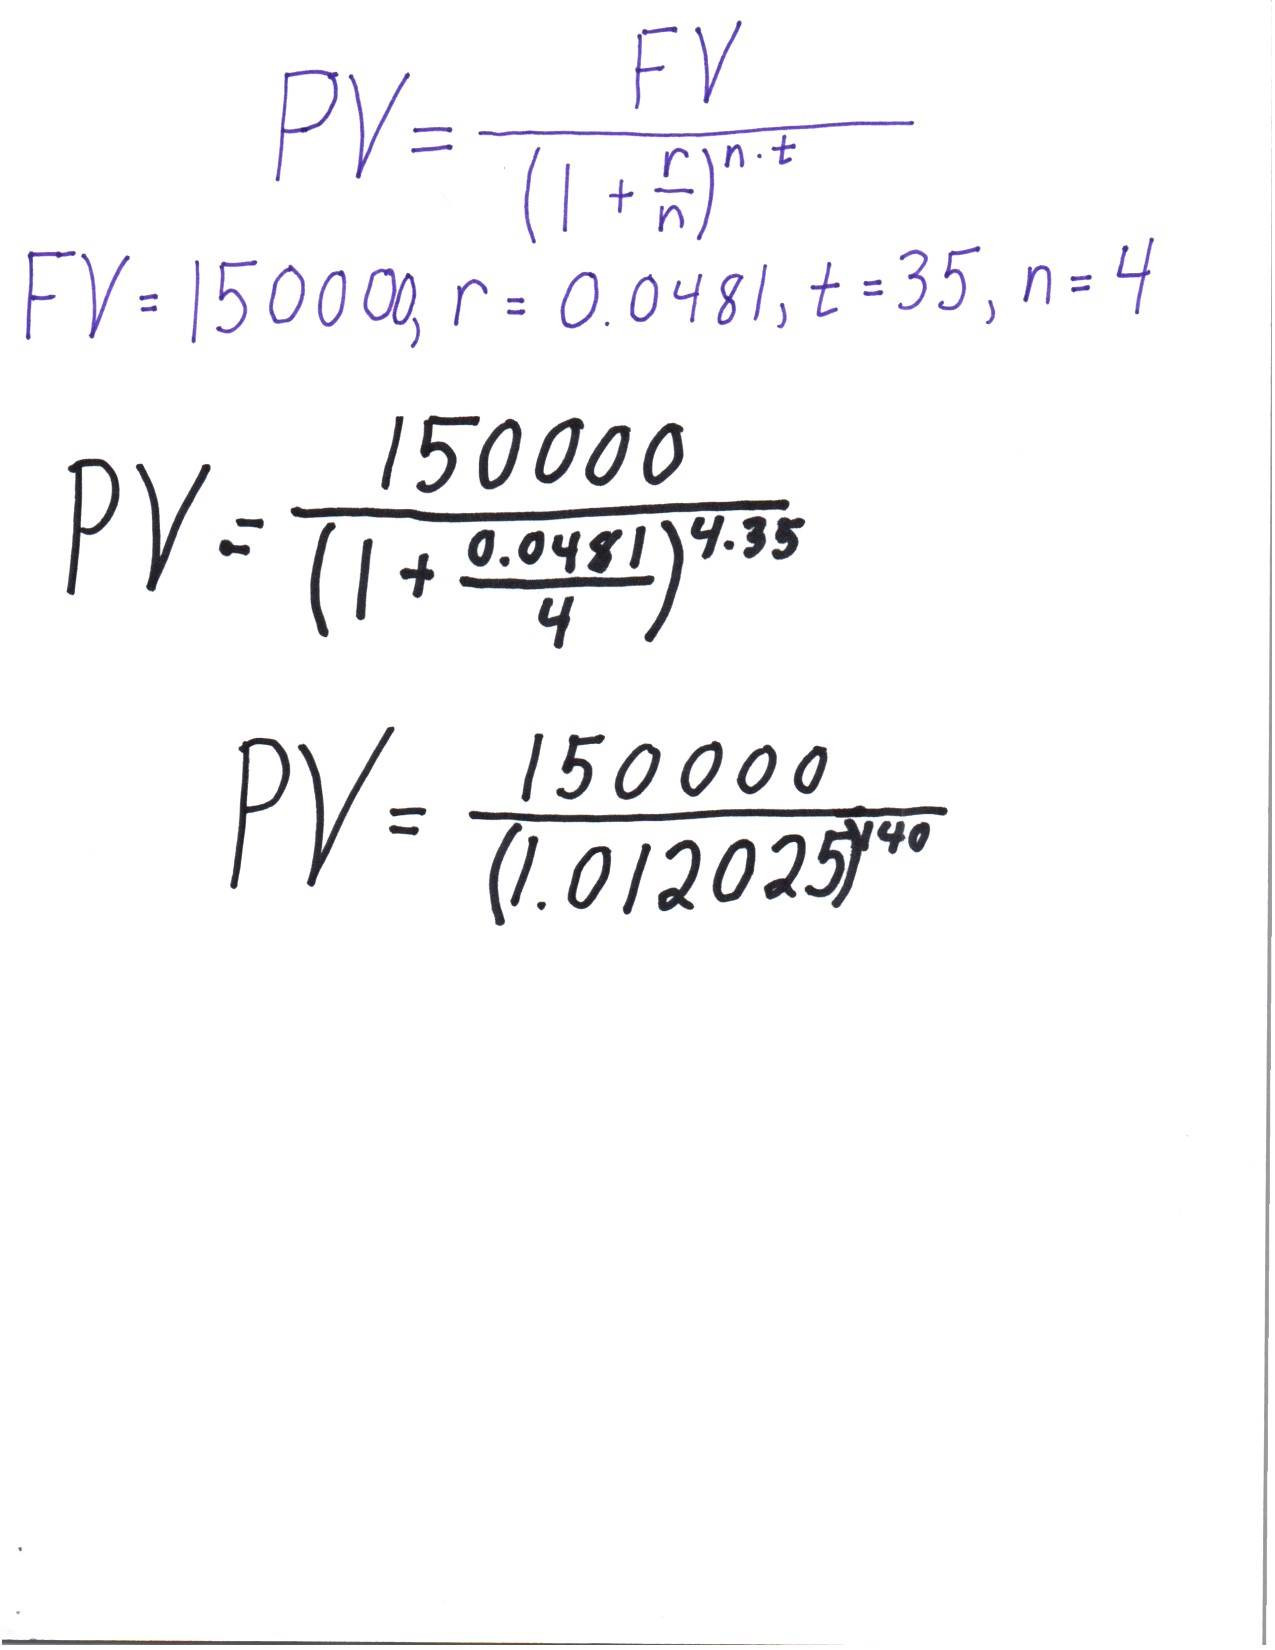 PV = FV / (1 + r/n)^n·t
FV = 150000, r = 0.0481, t = 35, n = 4
PV = 150000 / (1 + 0.0481/4)^4·35
PV = 150000 / (1.012025)^140